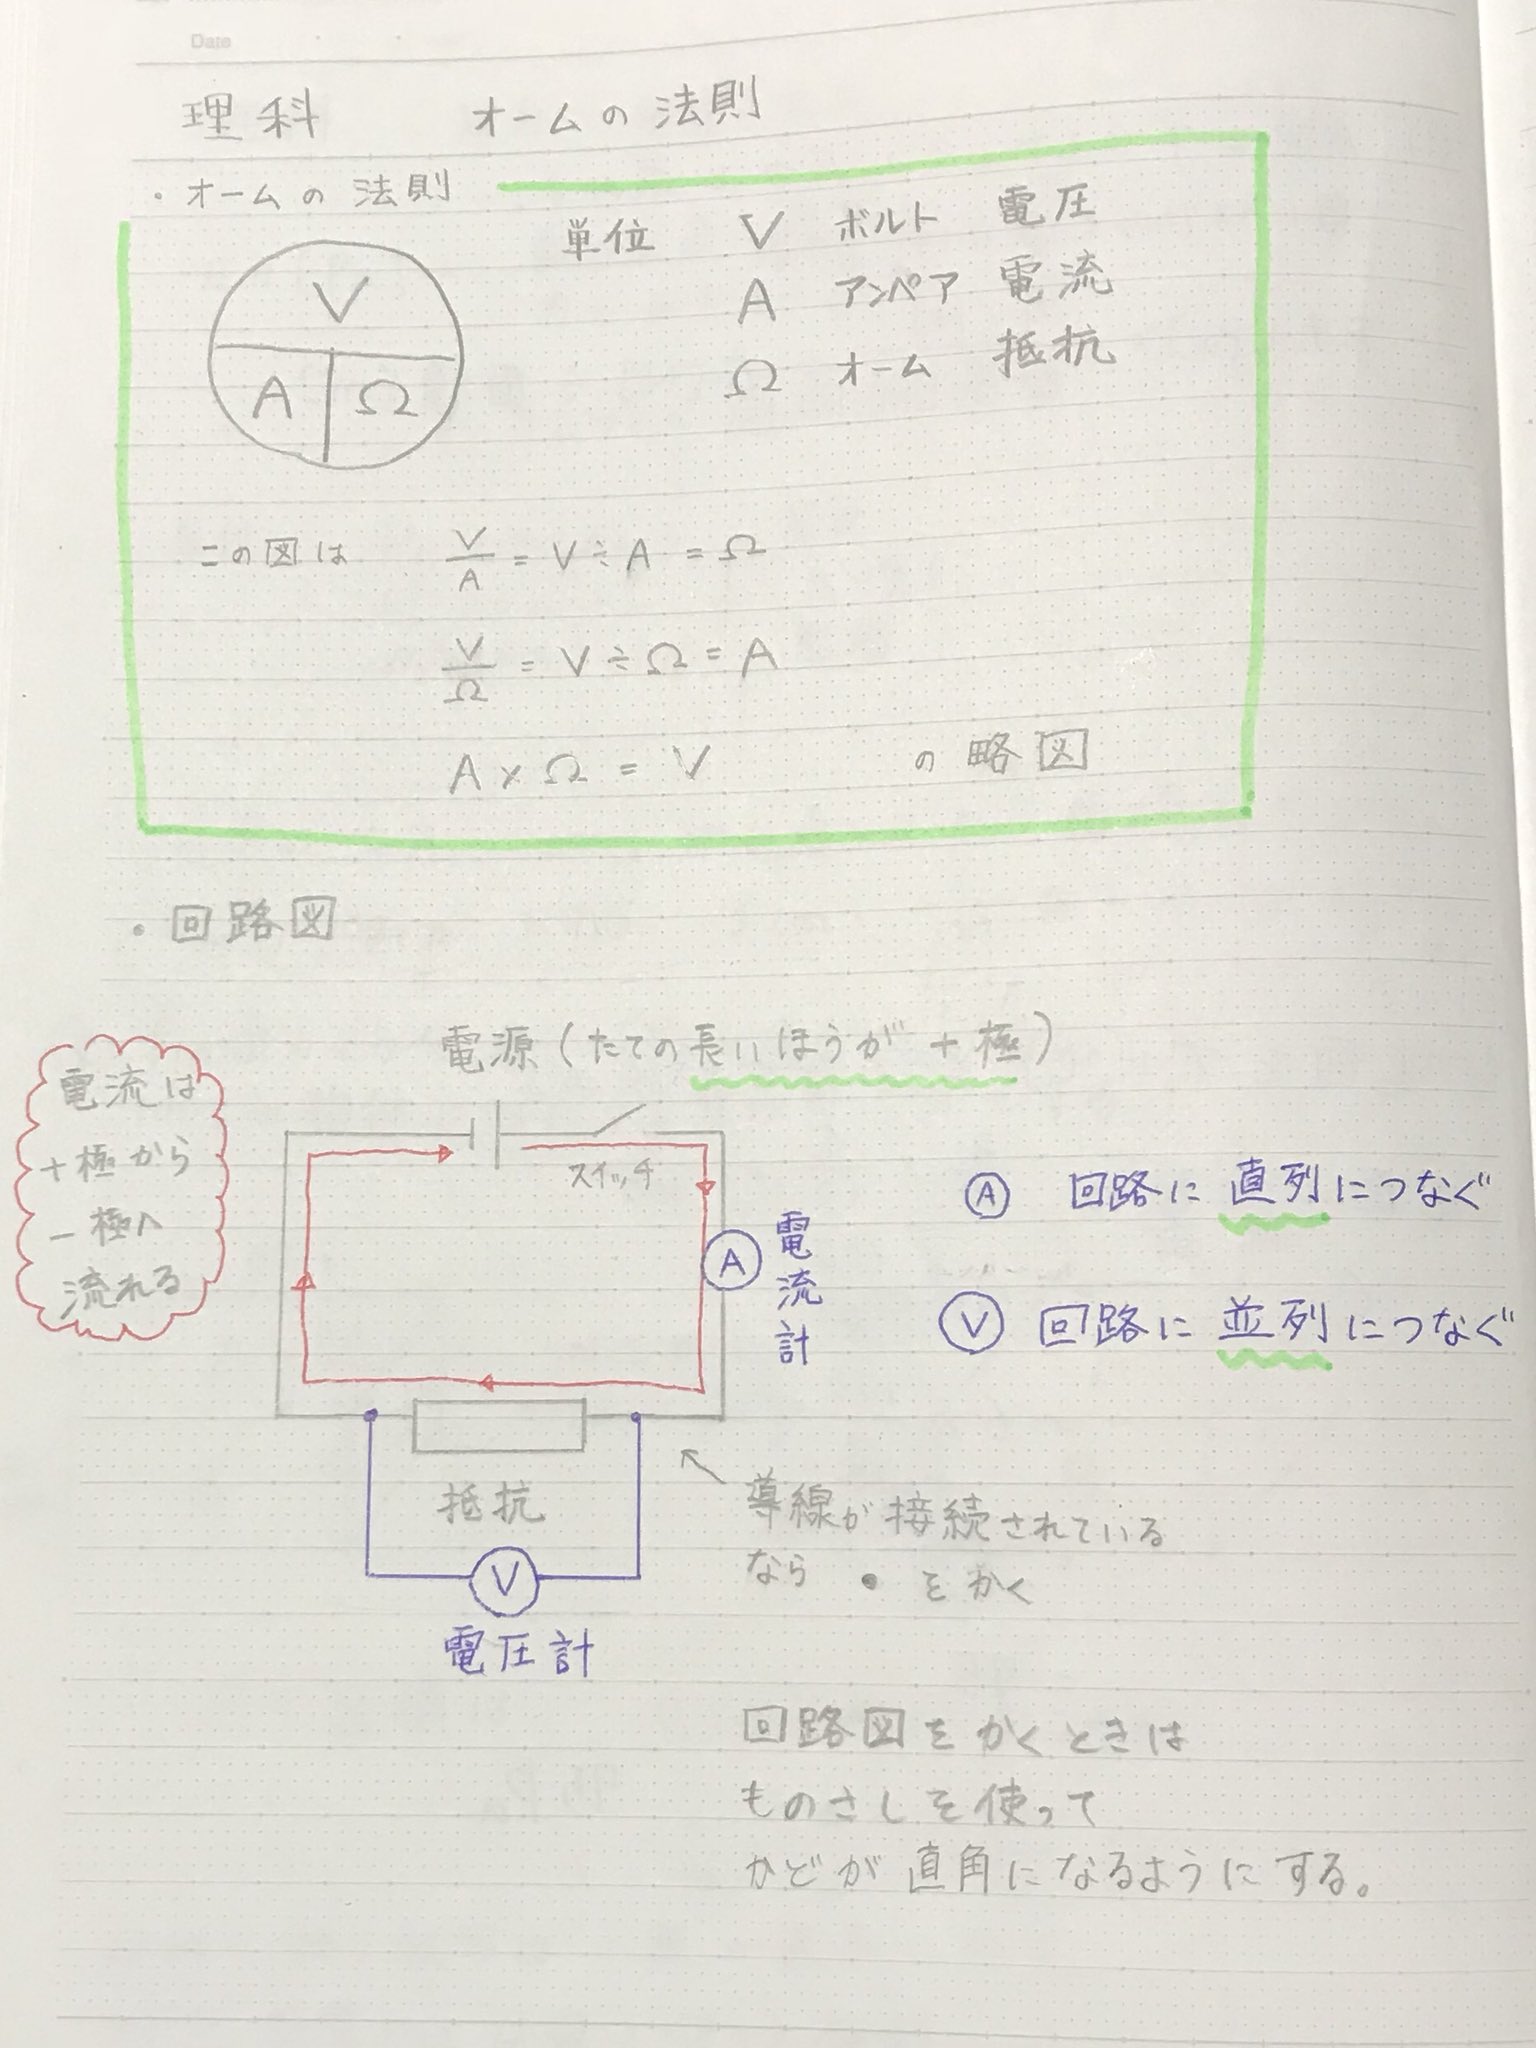 Date
理科 オームの法則
・オームの法則
単位 V ボルト 電圧
A アンペア 電流
Ω オーム 抵抗
V
A Ω
この図は V/A = V÷A = Ω
V/Ω = V÷Ω = A
A×Ω = V の略図
・回路図
電源(たての長いほうが+極)
電流は
+極から
−極へ
流れる
スイッチ
A
電流計
Ⓐ 回路に直列につなぐ
Ⓥ 回路に並列につなぐ
抵抗
導線が接続されている
なら ・をかく
V
電圧計
回路図をかくときは
ものさしを使って
かどが直角になるようにする。